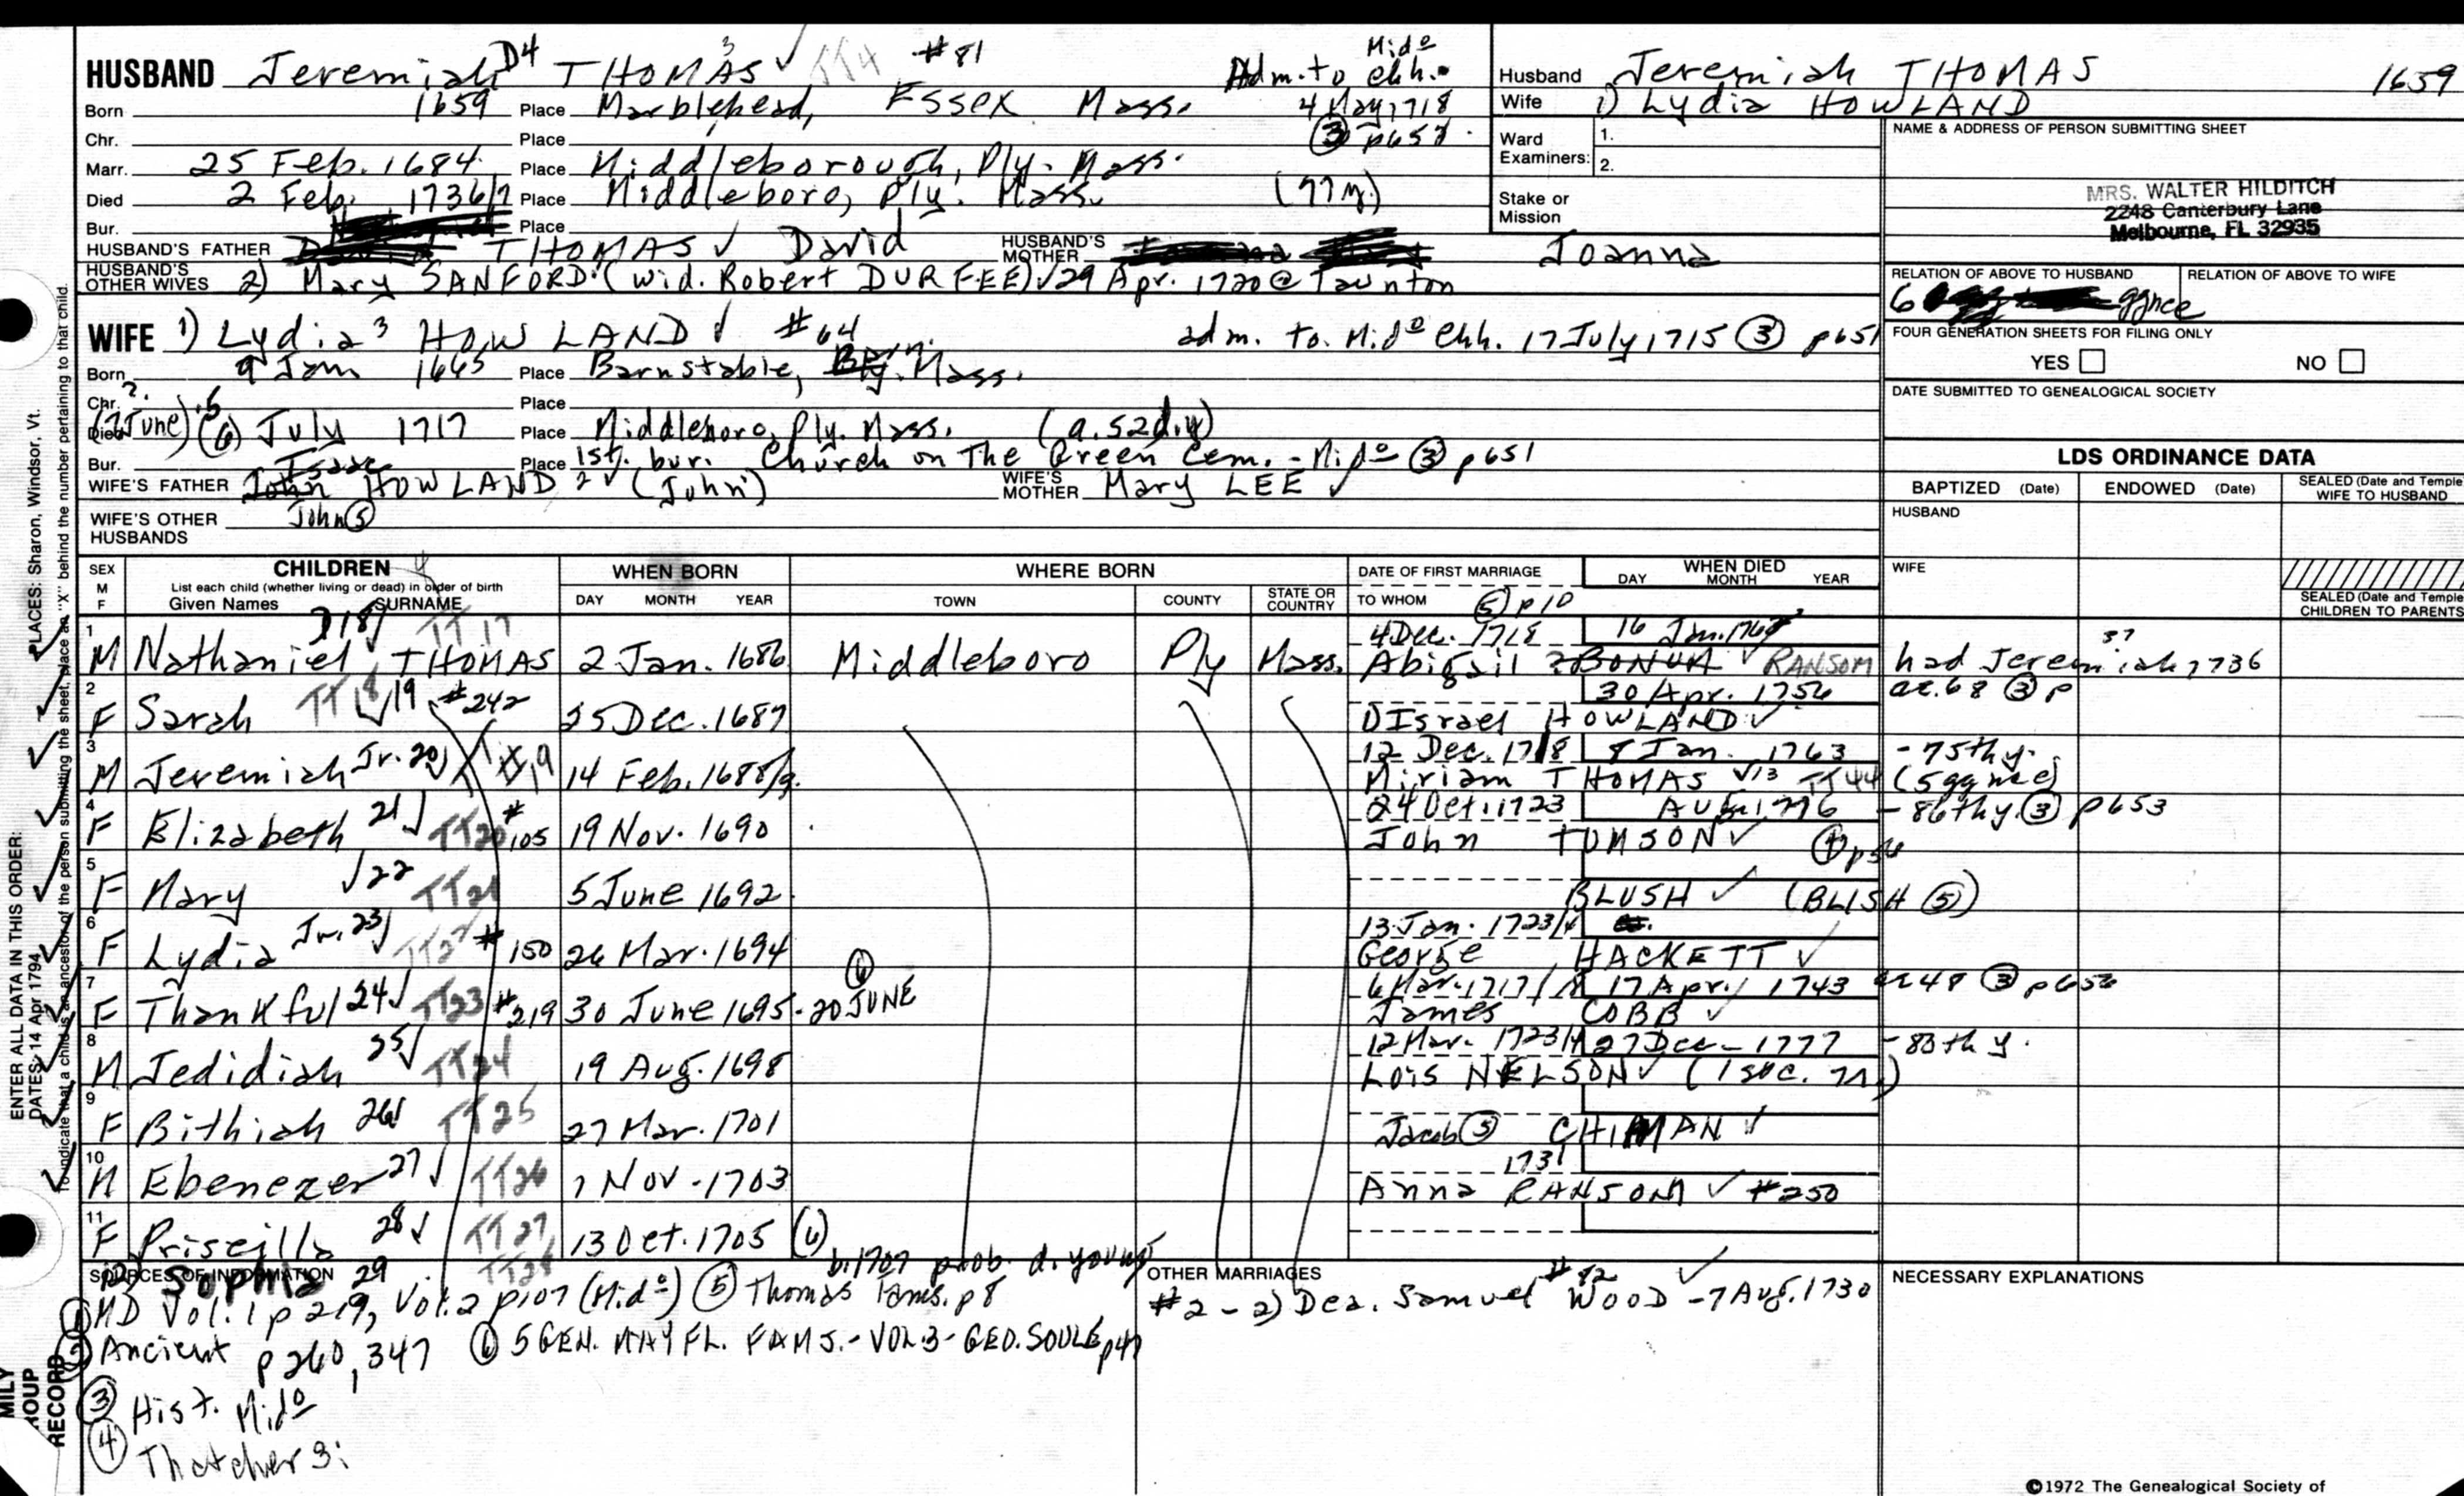 HUSBAND Jeremiah D4 THOMAS 3 ✓ #81
Mid o
Adm. to chh.
Born 1659 Place Marblehead, Essex Mass. 4 May 1718
Chr. Place ③ p653
Marr. 25 Feb. 1684 Place Middleborough, Ply. Mass.
Died 2 Feb. 1736/7 Place Middleboro, Ply. Mass. (77 y.)
Bur. Place
HUSBAND'S FATHER THOMAS ✓ David HUSBAND'S MOTHER Joanna
HUSBAND'S OTHER WIVES 2) Mary SANFORD (wid. Robert DURFEE) ✓ 29 Apr. 1720 @ Taunton
Husband Jeremiah THOMAS 1659
Wife 1) Lydia HOWLAND
Ward Examiners: 1.
2.
Stake or Mission
NAME & ADDRESS OF PERSON SUBMITTING SHEET
MRS. WALTER HILDITCH
2248 Canterbury Lane
Melbourne, FL 32935
RELATION OF ABOVE TO HUSBAND RELATION OF ABOVE TO WIFE
6 ggnce
FOUR GENERATION SHEETS FOR FILING ONLY
YES NO
DATE SUBMITTED TO GENEALOGICAL SOCIETY
WIFE 1) Lydia 3 HOWLAND ✓ #64 adm. to Mid o Chh. 17 July 1715 ③ p651
Born 9 Jan 1665 Place Barnstable, Mass.
Chr. Place
Died (7 June) (6) July 1717 Place Middleboro, Ply. Mass. (a. 52
Bur. Place 1st bur. Church on The Green Cem. - Mid o ③ p651
WIFE'S FATHER Isaac John HOWLAND 2 ✓ (John 1) WIFE'S MOTHER Mary LEE ✓
John ⑤
WIFE'S OTHER HUSBANDS
LDS ORDINANCE DATA
BAPTIZED (Date) ENDOWED (Date) SEALED (Date and Temple) WIFE TO HUSBAND
HUSBAND
WIFE
SEALED (Date and Temple) CHILDREN TO PARENTS
SEX M F CHILDREN List each child (whether living or dead) in order of birth Given Names SURNAME
WHEN BORN DAY MONTH YEAR
WHERE BORN TOWN COUNTY STATE OR COUNTRY
DATE OF FIRST MARRIAGE TO WHOM ⑤ p10
WHEN DIED DAY MONTH YEAR
4 Dec. 1718 16 Jan.
1 M Nathaniel THOMAS D18 ✓ TT17 2 Jan. 1686 Middleboro Ply Mass. Abigail ? BONUM ✓ RANSOM had Jeremiah, 1736 37
30 Apr. 1756 ae. 68 ③ p
2 F Sarah TT18 ✓ 19 #242 25 Dec. 1687 1) Israel HOWLAND ✓
12 Dec. 1718 8 Jan. 1763 - 75th y.
3 M Jeremiah Jr. 20 ✓ 14 Feb. 1688/9. Miriam THOMAS ✓ 13 TT44 (5 gg nce)
24 Oct. 1723 Aug 1776 - 86th y. ③ p653
4 F Elizabeth 21 ✓ TT20 #105 19 Nov. 1690 John TOMSON ✓ ④ p56
5 F Mary ✓ 22 TT21 5 June 1692. BLUSH ✓ (BLISH ⑤)
13 Jan. 1723/4
6 F Lydia Jr. 23 ✓ TT22 #150 26 Mar. 1694 George HACKETT ✓
6 Mar. 1717/8 17 Apr. 1743 ae 48 ③
7 F Thankful 24 ✓ TT23 #219 30 June 1695 - 20 JUNE ⑥ James COBB ✓
12 Mar. 1723/4 27 Dec - 1777 - 83th y.
8 M Jedidiah 25 ✓ TT24 19 Aug. 1698 Lois NELSON ✓ (1 sec. m.)
9 F Bithiah 26 ✓ TT25 27 Mar. 1701 Jacob ③ CHIPMAN ✓
1731
10 M Ebenezer 27 ✓ TT26 1 Nov - 1703 Anna RANSOM ✓ #250
11 F Priscilla 28 ✓ TT27 13 Oct. 1705 (6)
12) Sophia 29 TT28 b. 1707 prob. d. young
SOURCES OF INFORMATION
① MD Vol. 1 p 219, Vol. 2 p107 (Mid o) ⑤ Thomas Fams. p 8
② Ancient p 260, 347 ⑥ 5 GEN. MAYFL. FAMS. - VOL. 3 - GEO. SOULE, p47
③ Hist. Mid o
④ Thatcher 3:
OTHER MARRIAGES
#2 - 2) Dea. Samuel WOOD #82 ✓ - 7 Aug. 1730
NECESSARY EXPLANATIONS
©1972 The Genealogical Society of
ENTER ALL DATA IN THIS ORDER:
DATES: 14 Apr 1794 PLACES: Sharon, Windsor, Vt.
To indicate that a child is an ancestor of the person submitting the sheet, place an "X" behind the number pertaining to that child.
MILY
ROUP
RECORD